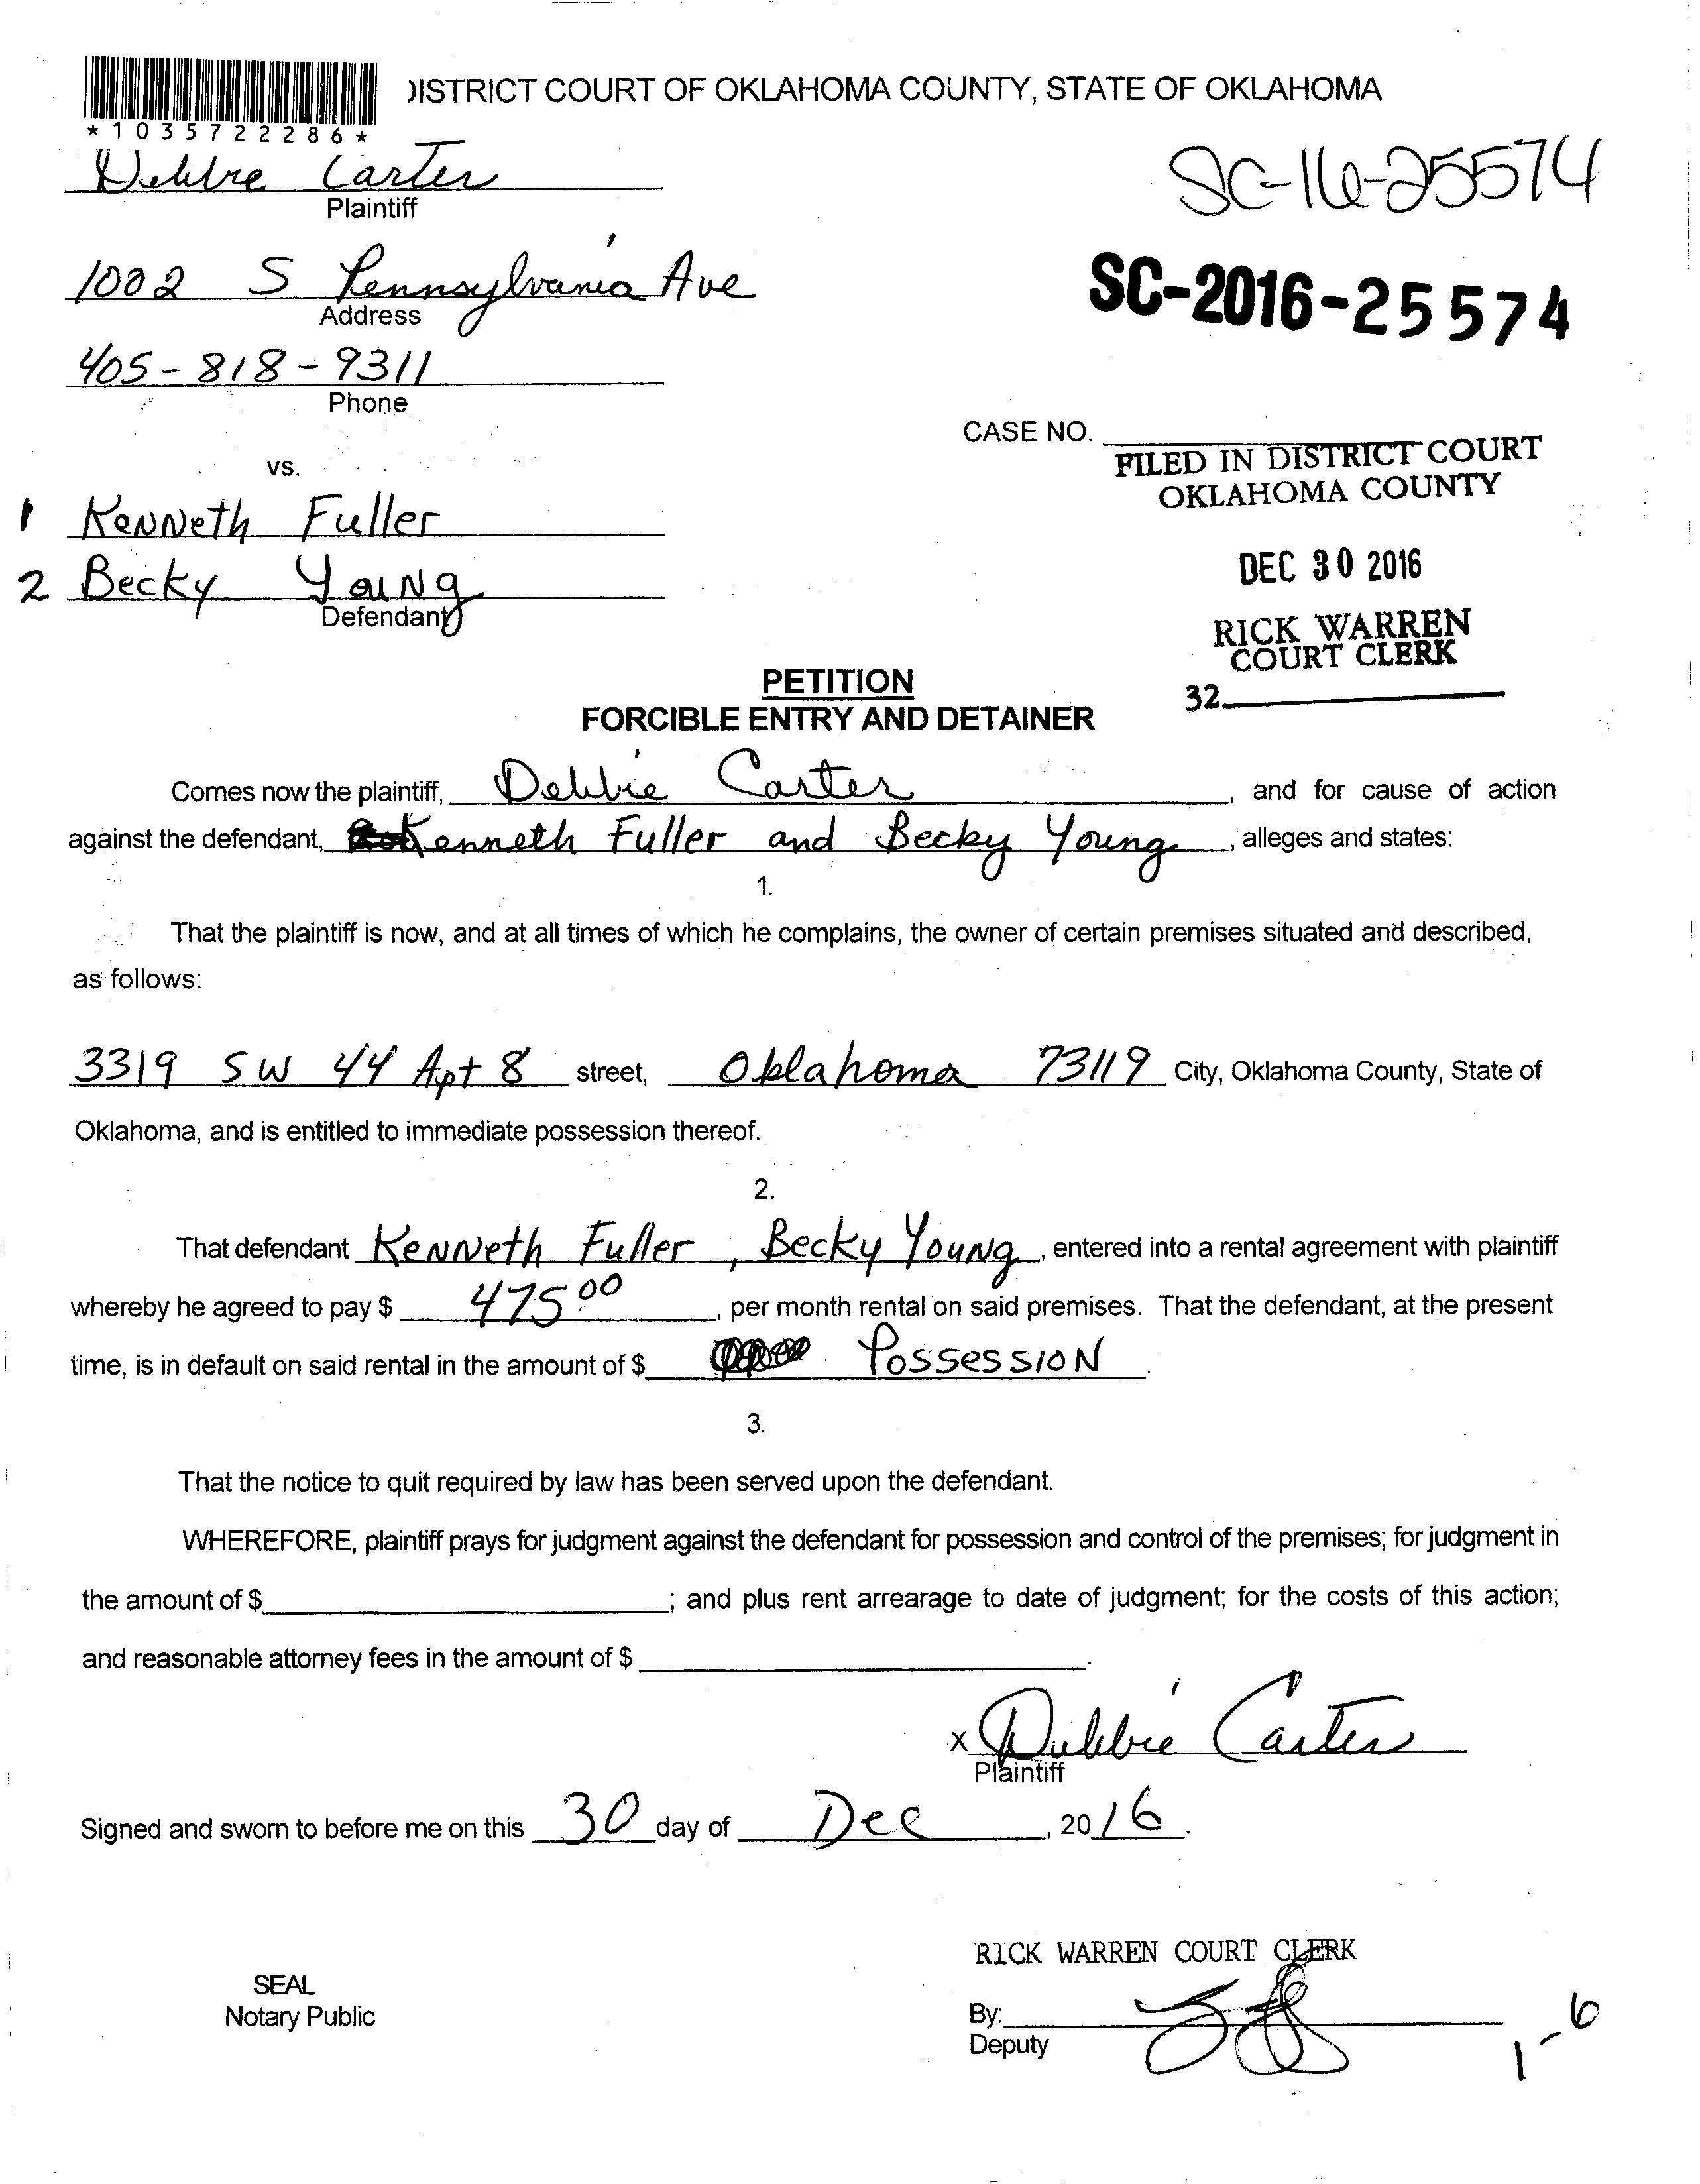 DISTRICT COURT OF OKLAHOMA COUNTY, STATE OF OKLAHOMA
*1035722286*
Debbie Carter
Plaintiff
SC-16-25574
1002 S Pennsylvania Ave
Address
SC-2016-25574
405-818-9311
Phone
CASE NO.
FILED IN DISTRICT COURT
OKLAHOMA COUNTY
vs.
1 Kenneth Fuller
DEC 30 2016
2 Becky Young
Defendant
RICK WARREN
COURT CLERK
32
PETITION
FORCIBLE ENTRY AND DETAINER
Comes now the plaintiff, Debbie Carter, and for cause of action
against the defendant, Kenneth Fuller and Becky Young, alleges and states:
1.
That the plaintiff is now, and at all times of which he complains, the owner of certain premises situated and described,
as follows:
3319 SW 44 Apt 8 street, Oklahoma 73119 City, Oklahoma County, State of
Oklahoma, and is entitled to immediate possession thereof.
2.
That defendant Kenneth Fuller, Becky Young, entered into a rental agreement with plaintiff
whereby he agreed to pay $ 475 00, per month rental on said premises. That the defendant, at the present
time, is in default on said rental in the amount of $ Possession.
3.
That the notice to quit required by law has been served upon the defendant.
WHEREFORE, plaintiff prays for judgment against the defendant for possession and control of the premises; for judgment in
the amount of $ ; and plus rent arrearage to date of judgment; for the costs of this action;
and reasonable attorney fees in the amount of $ .
x Debbie Carter
Plaintiff
Signed and sworn to before me on this 30 day of Dec, 2016.
RICK WARREN COURT CLERK
SEAL
Notary Public
By:
Deputy
1-6